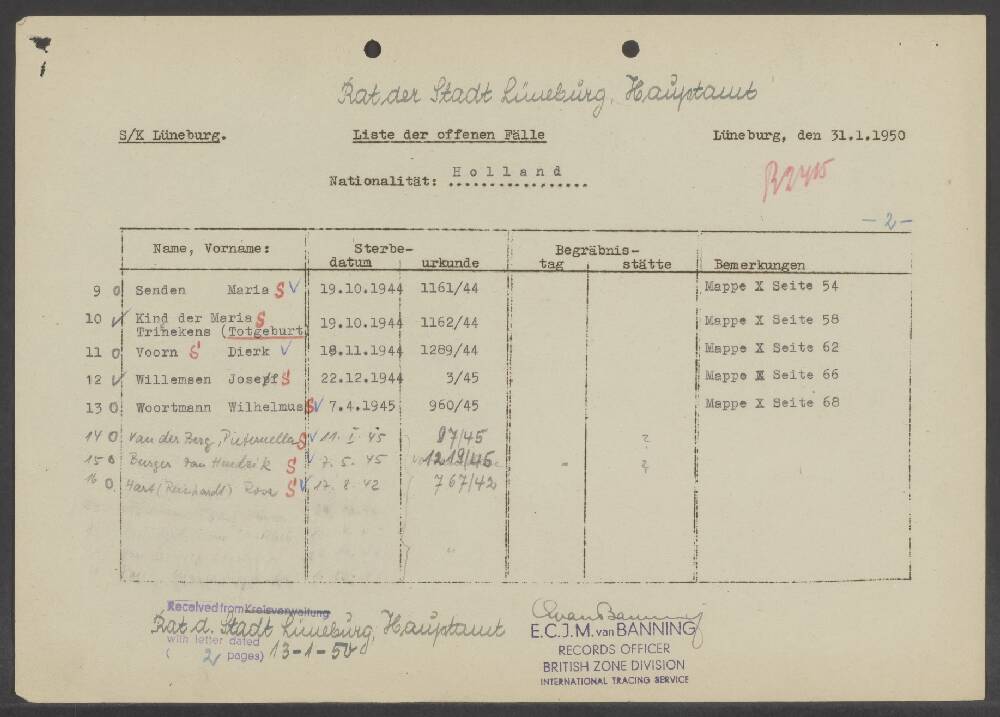 Rat der Stadt Lüneburg, Hauptamt
S/K Lüneburg. Liste der offenen Fälle Lüneburg, den 31.1.1950
Nationalität: Holland
- 2 -
Name, Vorname: Sterbe- Begräbnis-
datum urkunde tag stätte Bemerkungen
9 0 Senden Maria S V 19.10.1944 1161/44 Mappe X Seite 54
10 Kind der Maria S
Trinekens (Totgeburt 19.10.1944 1162/44 Mappe X Seite 58
11 0 Voorn S Dierk V 18.11.1944 1289/44 Mappe X Seite 62
12 Willemsen Josef S 22.12.1944 3/45 Mappe X Seite 66
13 0 Woortmann Wilhelmus S V 7.4.1945 960/45 Mappe X Seite 68
14 0 van der Berg, Pieternella S V 11. I. 45 97/45 ?
15 0 Burger Jan Hendrik S V 7. 5. 45 1219/45 - ?
16 0 Hart (Reinhardt) Rosa S V 17. 8. 42 767/42
Received from Kreisverwaltung
Rat d. Stadt Lüneburg, Hauptamt
with letter dated 13-1-50
( 2 pages)
E.C.J.M. van BANNING
RECORDS OFFICER
BRITISH ZONE DIVISION
INTERNATIONAL TRACING SERVICE